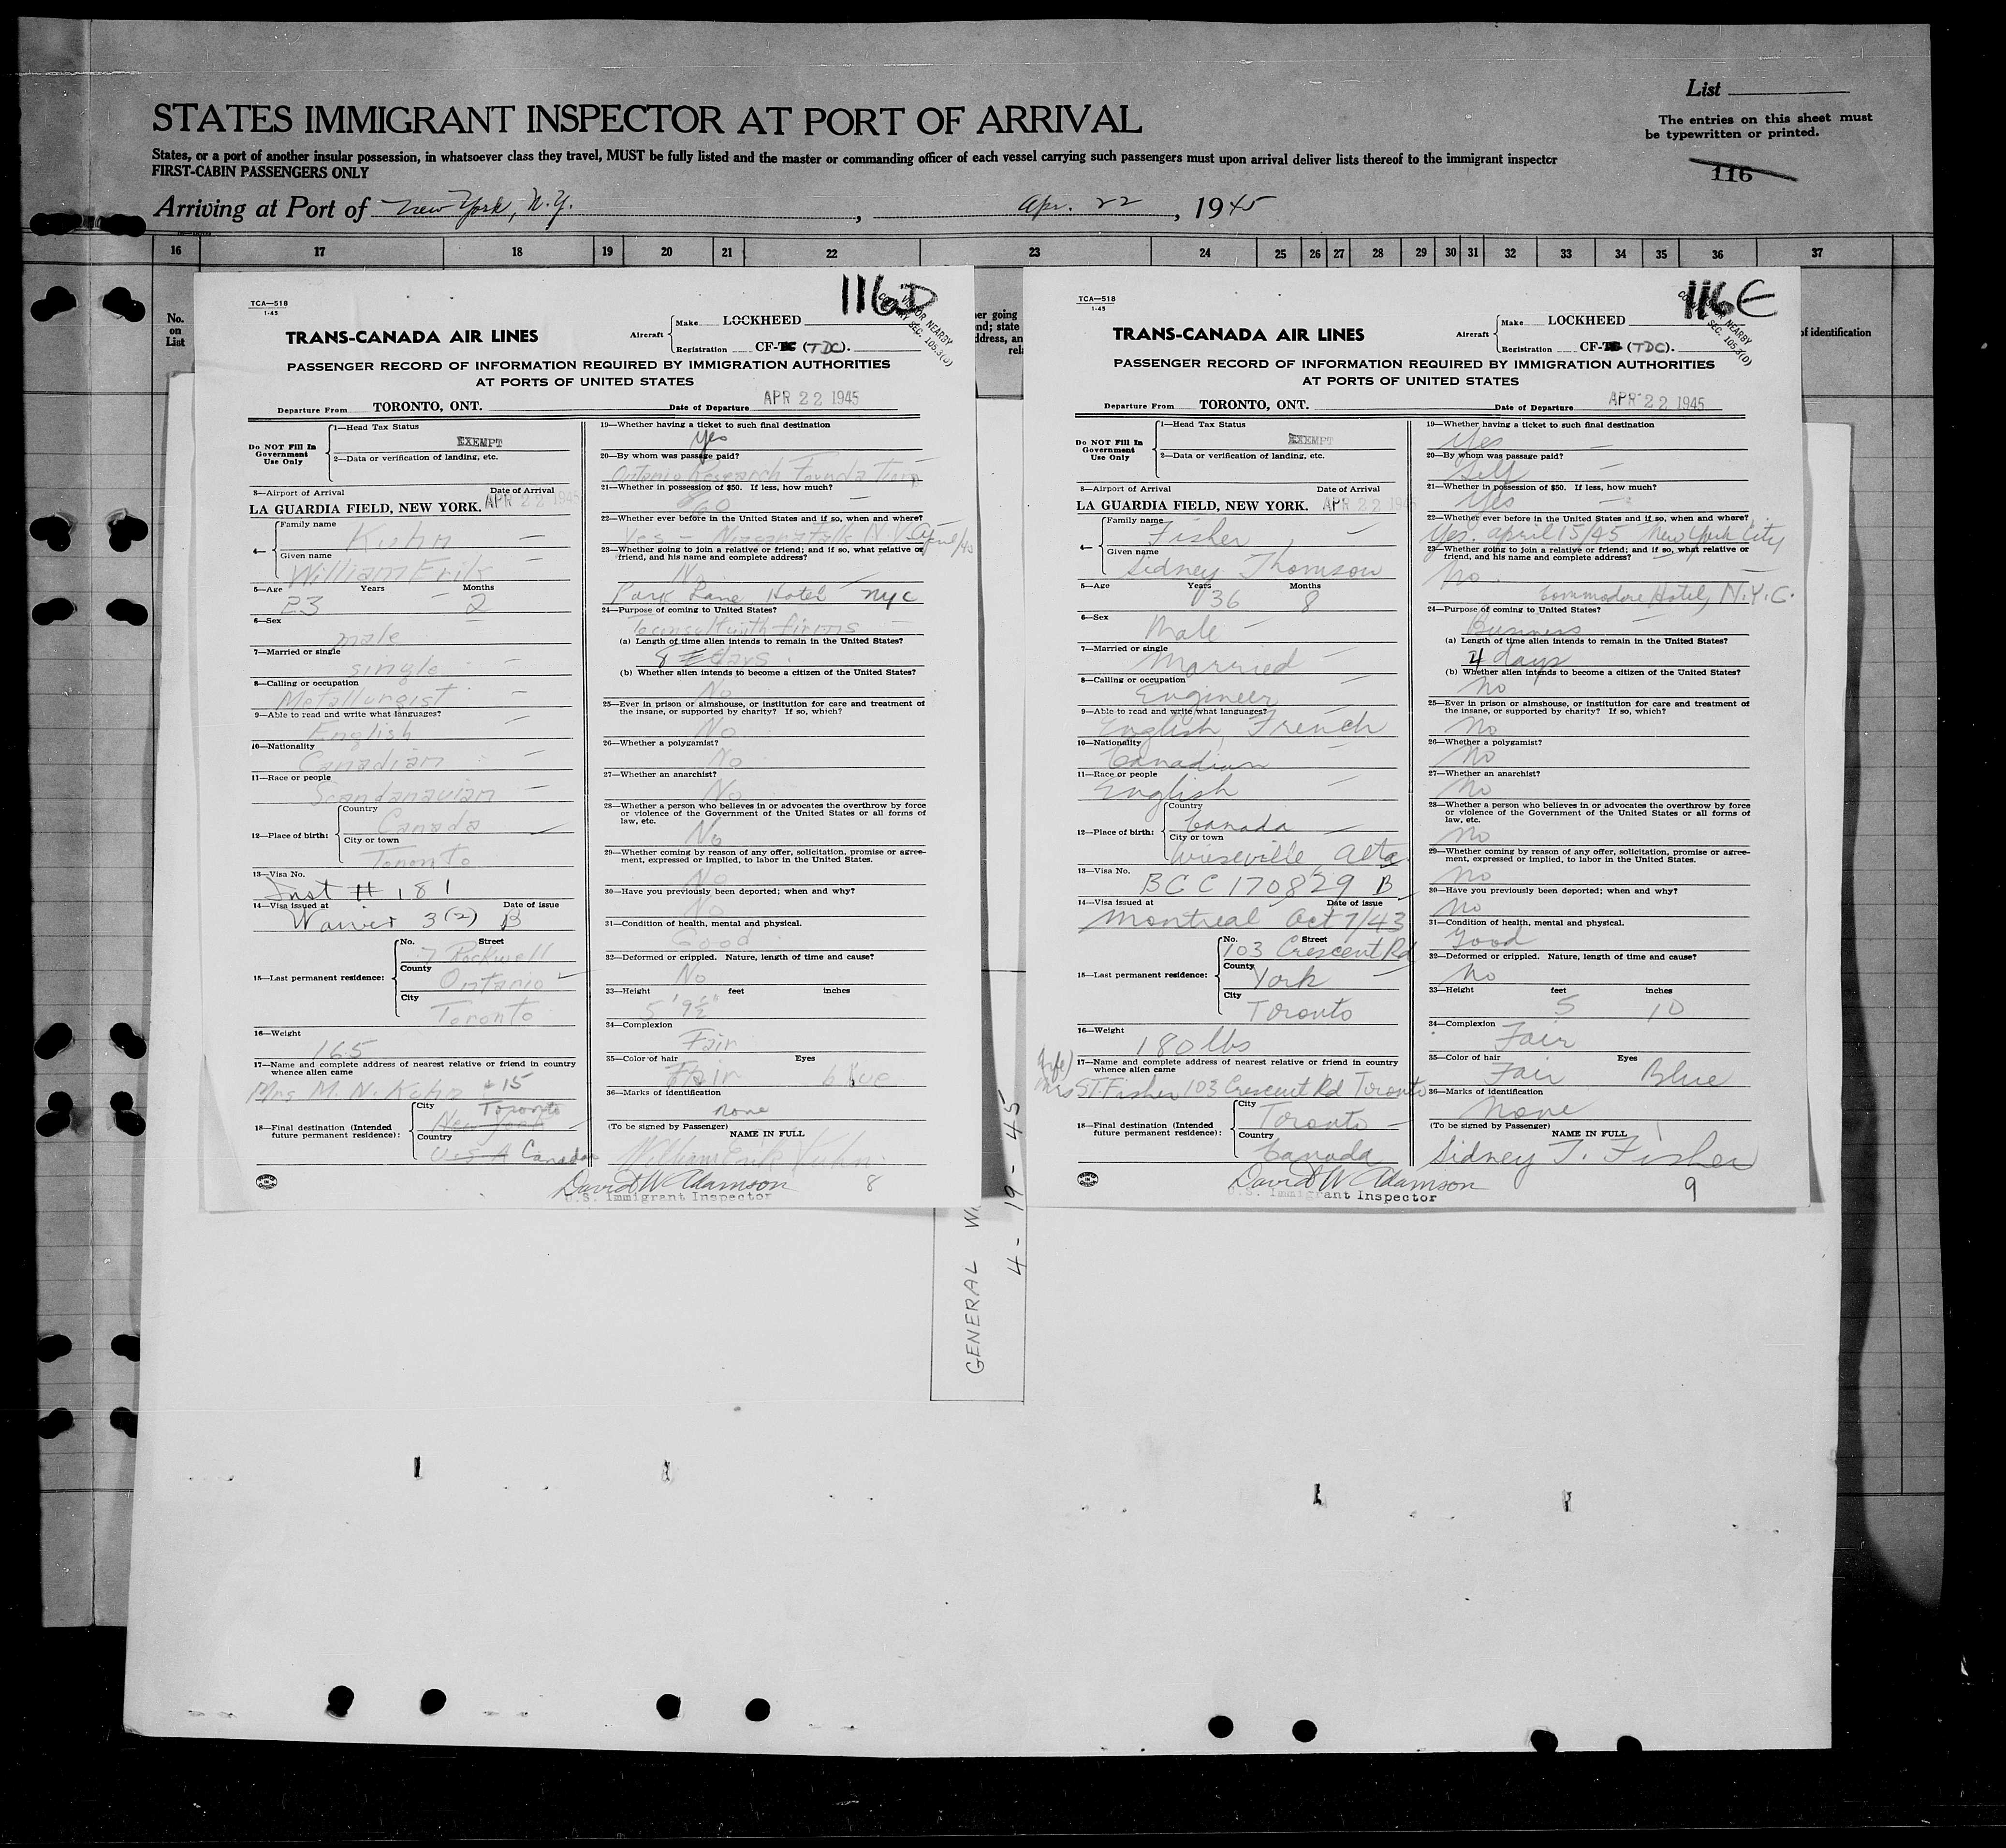 List
STATES IMMIGRANT INSPECTOR AT PORT OF ARRIVAL
The entries on this sheet must
be typewritten or printed.
States, or a port of another insular possession, in whatsoever class they travel, MUST be fully listed and the master or commanding officer of each vessel carrying such passengers must upon arrival deliver lists thereof to the immigrant inspector
FIRST-CABIN PASSENGERS ONLY
116
Arriving at Port of New York, N.Y. , Apr. 22 , 1945
16 17 18 19 20 21 22 23 24 25 26 27 28 29 30 31 32 33 34 35 36 37
No.
on
List
of identification
116D
TCA—518
1-45
TRANS-CANADA AIR LINES
Aircraft Make LOCKHEED
Registration CF- (TDC).
PASSENGER RECORD OF INFORMATION REQUIRED BY IMMIGRATION AUTHORITIES
AT PORTS OF UNITED STATES
Departure From TORONTO, ONT. Date of Departure APR 22 1945
Do NOT Fill In
Government
Use Only
1—Head Tax Status
EXEMPT
2—Data or verification of landing, etc.
3—Airport of Arrival Date of Arrival
LA GUARDIA FIELD, NEW YORK. APR 22 1945
4— Family name
Kuhn
Given name
William Erik
5—Age Years Months
23 2
6—Sex
male
7—Married or single
single
8—Calling or occupation
Metallurgist
9—Able to read and write what languages?
English
10—Nationality
Canadian
11—Race or people
Scandanavian
12—Place of birth: Country
Canada
City or town
Toronto
13—Visa No.
Inst # 181
14—Visa issued at Date of issue
Waiver 3(2) B
15—Last permanent residence: No. Street
7 Rockwell
County
Ontario
City
Toronto
16—Weight
165
17—Name and complete address of nearest relative or friend in country
whence alien came
Mrs M. N. Kuhn #15
18—Final destination (Intended
future permanent residence): City
Toronto
New York
Country
U.S.A Canada
19—Whether having a ticket to such final destination
yes
20—By whom was passage paid?
Ontario Research Foundation
21—Whether in possession of $50. If less, how much?
60
22—Whether ever before in the United States and if so, when and where?
Yes – Niagara Falls N.Y. April/40
23—Whether going to join a relative or friend; and if so, what relative or
friend, and his name and complete address?
No
Park Lane Hotel NYC
24—Purpose of coming to United States?
To consult with firms
(a) Length of time alien intends to remain in the United States?
8 days
(b) Whether alien intends to become a citizen of the United States?
No
25—Ever in prison or almshouse, or institution for care and treatment of
the insane, or supported by charity? If so, which?
No
26—Whether a polygamist?
No
27—Whether an anarchist?
No
28—Whether a person who believes in or advocates the overthrow by force
or violence of the Government of the United States or all forms of
law, etc.
No
29—Whether coming by reason of any offer, solicitation, promise or agree-
ment, expressed or implied, to labor in the United States.
No
30—Have you previously been deported; when and why?
No
31—Condition of health, mental and physical.
Good
32—Deformed or crippled. Nature, length of time and cause?
No
33—Height feet inches
5' 9½"
34—Complexion
Fair
35—Color of hair Eyes
Fair blue
36—Marks of identification
none
(To be signed by Passenger)
NAME IN FULL
William Erik Kuhn
David W Adamson 8
U.S. Immigrant Inspector
116E
TCA—518
1-45
TRANS-CANADA AIR LINES
Aircraft Make LOCKHEED
Registration CF- (TDC).
PASSENGER RECORD OF INFORMATION REQUIRED BY IMMIGRATION AUTHORITIES
AT PORTS OF UNITED STATES
Departure From TORONTO, ONT. Date of Departure APR 22 1945
Do NOT Fill In
Government
Use Only
1—Head Tax Status
EXEMPT
2—Data or verification of landing, etc.
3—Airport of Arrival Date of Arrival
LA GUARDIA FIELD, NEW YORK. APR 22 1945
4— Family name
Fisher
Given name
Sidney Thomson
5—Age Years Months
36 8
6—Sex
Male
7—Married or single
Married
8—Calling or occupation
Engineer
9—Able to read and write what languages?
English French
10—Nationality
Canadian
11—Race or people
English
12—Place of birth: Country
Canada
City or town
Wiseville, Alta
13—Visa No.
BCC 170829 B
14—Visa issued at Date of issue
Montreal Oct 7/43
15—Last permanent residence: No. Street
103 Crescent Rd
County
York
City
Toronto
16—Weight
180 lbs
17—Name and complete address of nearest relative or friend in country
whence alien came
(wife)
Mrs S T Fisher 103 Crescent Rd Toronto
18—Final destination (Intended
future permanent residence): City
Toronto
Country
Canada
19—Whether having a ticket to such final destination
Yes
20—By whom was passage paid?
Self
21—Whether in possession of $50. If less, how much?
Yes
22—Whether ever before in the United States and if so, when and where?
Yes. April 15/45 New York City
23—Whether going to join a relative or friend; and if so, what relative or
friend, and his name and complete address?
No.
Commodore Hotel, N.Y.C.
24—Purpose of coming to United States?
Business
(a) Length of time alien intends to remain in the United States?
4 days
(b) Whether alien intends to become a citizen of the United States?
No
25—Ever in prison or almshouse, or institution for care and treatment of
the insane, or supported by charity? If so, which?
No
26—Whether a polygamist?
No
27—Whether an anarchist?
No
28—Whether a person who believes in or advocates the overthrow by force
or violence of the Government of the United States or all forms of
law, etc.
No
29—Whether coming by reason of any offer, solicitation, promise or agree-
ment, expressed or implied, to labor in the United States.
No
30—Have you previously been deported; when and why?
No
31—Condition of health, mental and physical.
Good
32—Deformed or crippled. Nature, length of time and cause?
No
33—Height feet inches
5 10
34—Complexion
Fair
35—Color of hair Eyes
Fair Blue
36—Marks of identification
None
(To be signed by Passenger)
NAME IN FULL
Sidney T. Fisher
David W Adamson 9
U.S. Immigrant Inspector
GENERAL
4-19-45